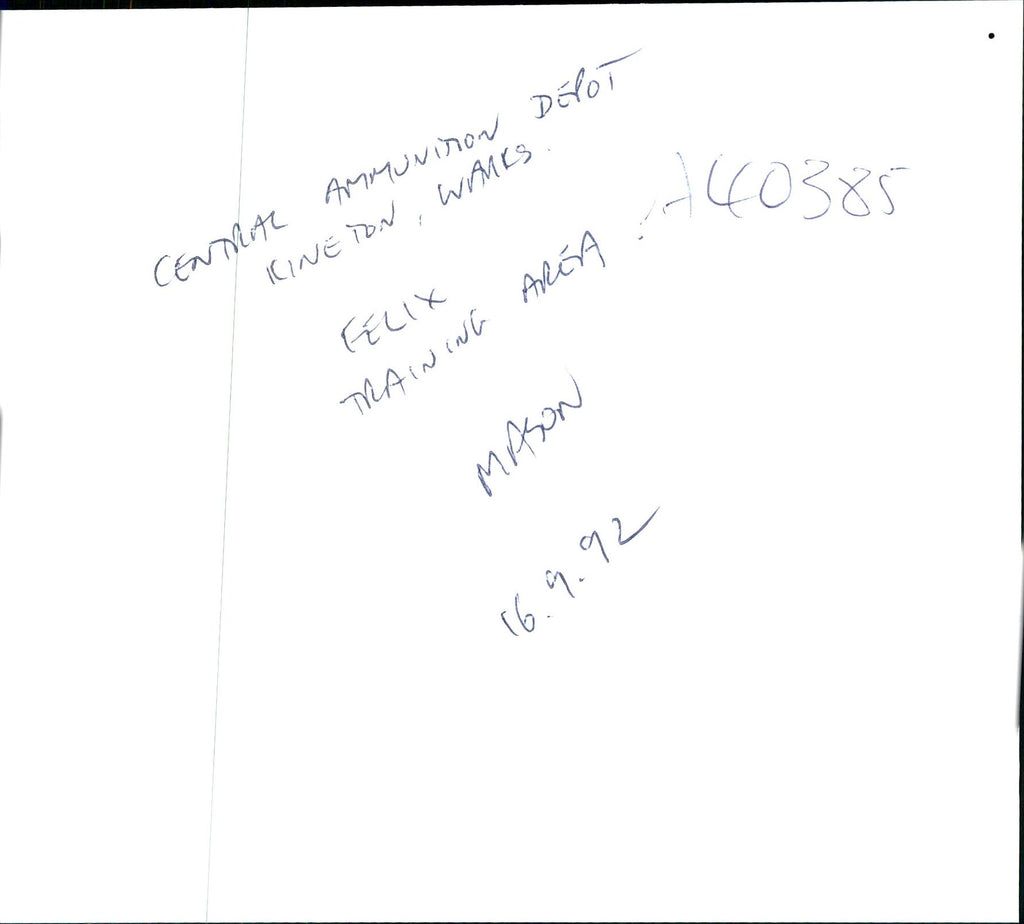 CENTRAL AMMUNITION DEPOT
KINETON, WARKS.
FELIX
TRAINING AREA
A40385
MASON
16.9.92